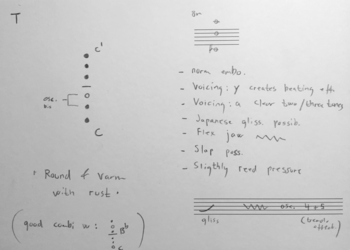 T
C'
osc.
C
" Round & Warm
with rust "
(good combi w: Bb
C
- norm embo.
- Voicing: y creates beating eff.
- Voicing: a clear two/three tones
- Japanese gliss. possib.
- Flex jaw
- Slap poss.
- Sligthly reed pressure
gliss
osc. 4+5